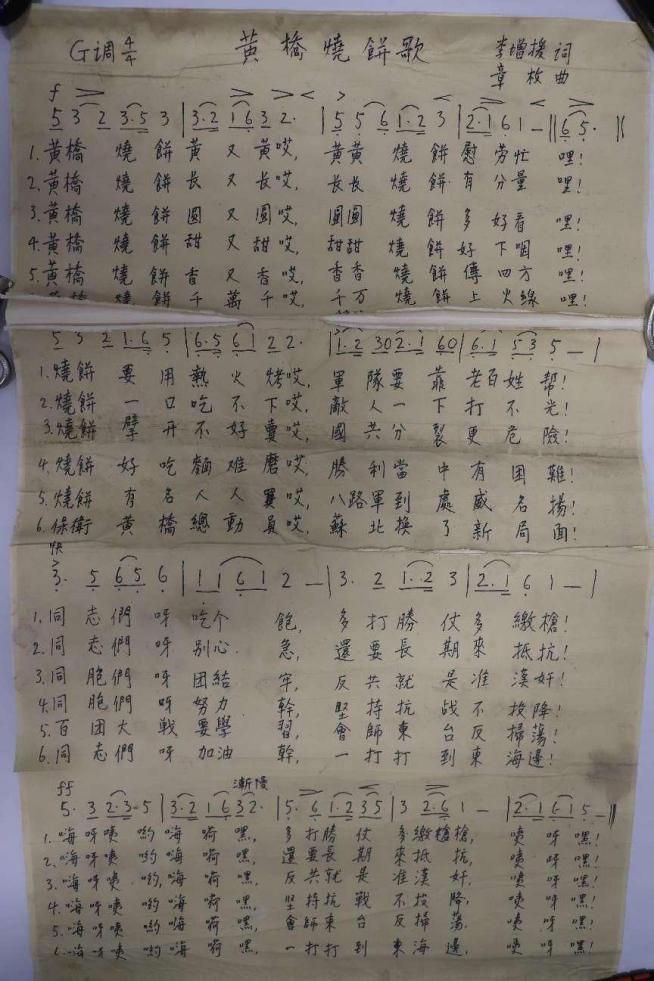 G调 4/4 黃橋燒餅歌 李增援 词
章枚 曲
f
5 3 2 3·5 3 | 3·2 1 6 3 2· | 5 5 6 1·2 3 | 2·1 6 1 — || 6 5· ||
1.黃橋 燒餅黃又黃哎, 黃黃 燒餅慰勞忙 嘿!
2.黃橋 燒餅長又長哎, 長長 燒餅有分量 嘿!
3.黃橋 燒餅圓又圓哎, 圓圓 燒餅多好看 嘿!
4.黃橋 燒餅甜又甜哎, 甜甜 燒餅好下咽 嘿!
5.黃橋 燒餅香又香哎, 香香 燒餅傳四方 嘿!
黃橋 燒餅千萬千哎, 千万 燒餅上火線 嘿!
5 3 2 1·6 5 | 6·5 6 1 2 2· | 1·2 3 0 2·1 6 0 | 6·1 5 3 5 — |
1.燒餅 要用熱火烤哎, 軍隊要靠老百姓幫!
2.燒餅 一口吃不下哎, 敵人一下打不光!
3.燒餅 擘开不好賣哎, 國共分裂更危險!
4.燒餅 好吃麵难磨哎, 勝利當中有困難!
5.燒餅 有名人人買哎, 八路軍到處威名揚!
6.保衛 黃橋總動員哎, 蘇北換了新局面!
快
3· 5 6 5 6 | 1 1 6 1 2 — | 3· 2 1·2 3 | 2·1 6 1 — |
1.同志們呀吃个飽, 多打勝仗多繳槍!
2.同志們呀别心急, 還要長期來抵抗!
3.同胞們呀团結牢, 反共就是准漢奸!
4.同胞們呀努力幹, 堅持抗战不投降!
5.百团大戰要學習, 會師東台反掃蕩!
6.同志們呀加油幹, 一打打到東海邊!
ff 漸慢
5· 3 2·3·5 | 3·2 1 6 3 2· | 5· 6 1·2 3 5 | 3 2·6 1 — | 2·1 6·1 5 — ||
1.嗨呀咦 喲嗨嗬嘿, 多打勝仗多繳槍槍, 咦呀嘿!
2.嗨呀咦 喲嗨嗬嘿, 還要長期來抵抗, 咦呀嘿!
3.嗨呀咦 喲,嗨嗬嘿, 反共就是准漢奸, 咦呀嘿!
4.嗨呀咦 喲嗨嗬嘿, 堅持抗戰不投降, 咦呀嘿!
5.嗨呀咦 喲嗨嗬嘿, 會師東台反掃蕩, 咦呀嘿!
6.嗨呀咦 喲嗨嗬嘿, 一打打到東海邊, 咦呀嘿!